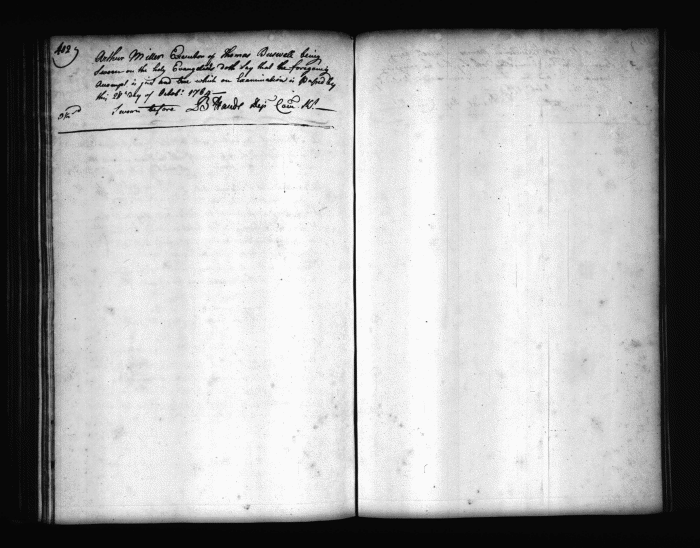 402
Arthur Miller Executor of Thomas Buswell being
Sworn on the holy Evangelists doth Say that the foregoing
Account is just and true which on Examination is Passed by
this 28th Day of Octobr. 1762
Sworn before B Hands Depy Com. Kt.